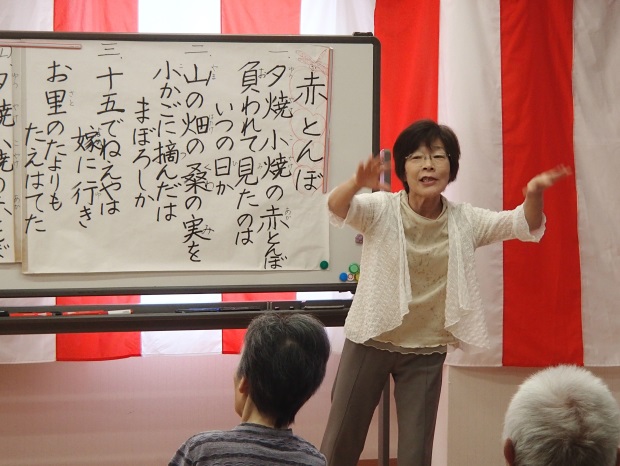 赤とんぼ
一、夕焼 小焼の赤とんぼ
負われて見たのは
いつの日か
二、山の畑の桑の実を
小かごに摘んだは
まぼろしか
三、十五でねえやは
嫁に行き
お里のたよりも
たえはてた
夕焼 小焼の赤とんぼ